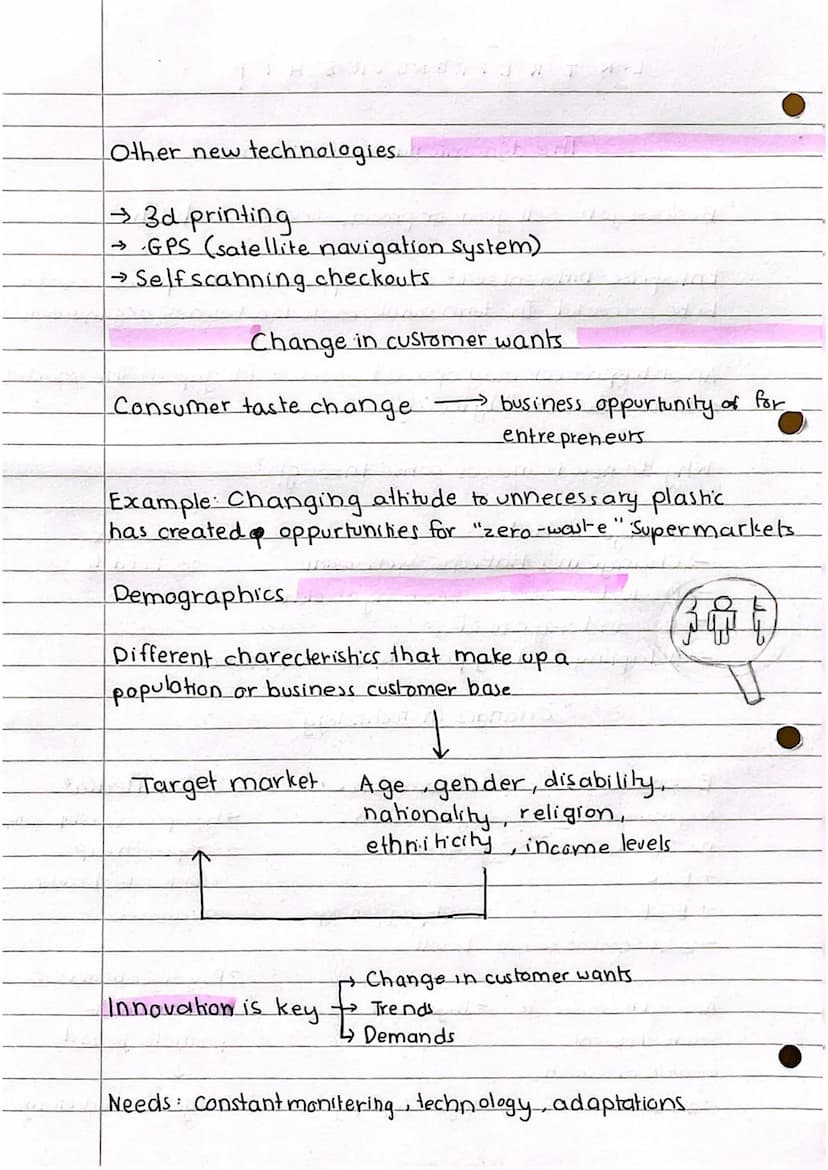 Other new technologies
→ 3d printing
→ GPS (satellite navigation system)
→ Self scanning checkouts
Change in customer wants
Consumer taste change → business oppurtunity of for
entrepreneurs
Example: Changing attitude to unnecessary plastic
has created oppurtunities for "zero-waste" Supermarkets
Demographics
Different charecteristics that make up a
population or business customer base
↓
Target market Age, gender, disability,
nationality, religion,
ethniticity, income levels
→ Change in customer wants
Innovation is key → Trends
↳ Demands
Needs: constant monitering, technology, adaptations